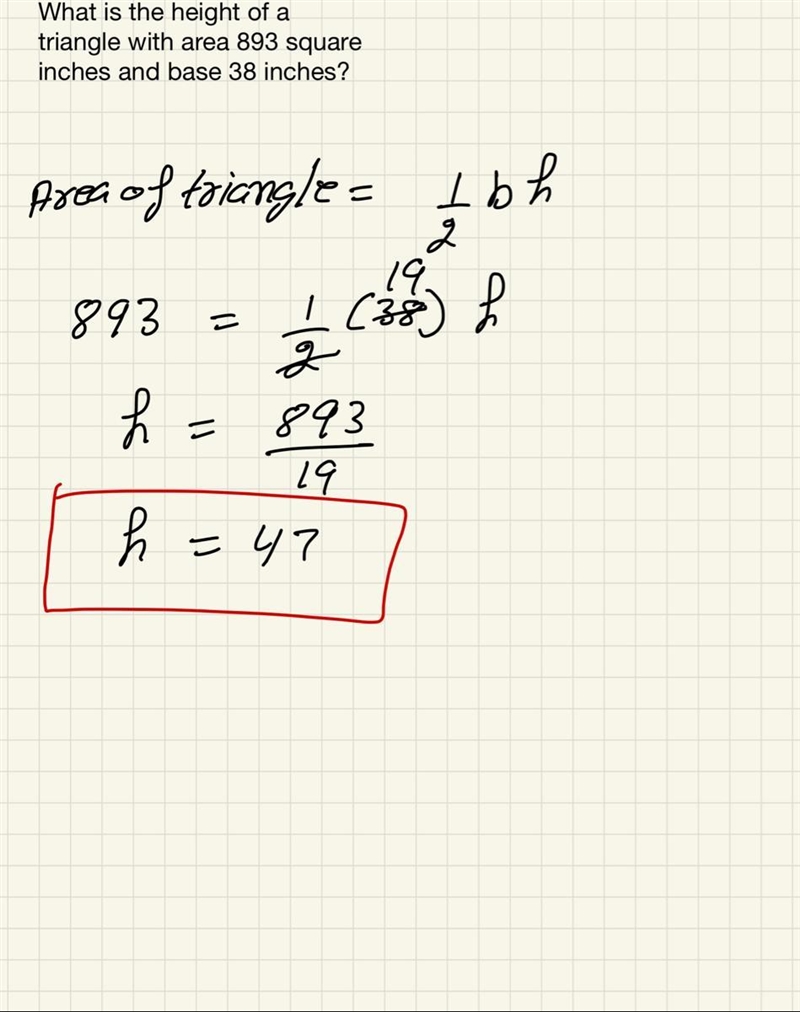 What is the height of a
triangle with area 893 square
inches and base 38 inches?
Area of triangle = 1/2 b h
19
893 = 1/2 (38) h
h = 893/19
h = 47